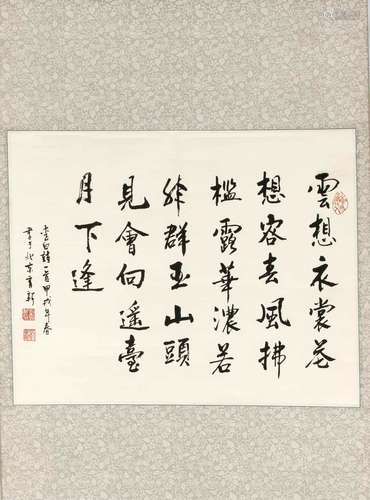 雲想衣裳花
想容春風拂
檻露華濃若
非群玉山頭
見會向遙臺
月下逢
李白詩一首甲戌年春
書于北京